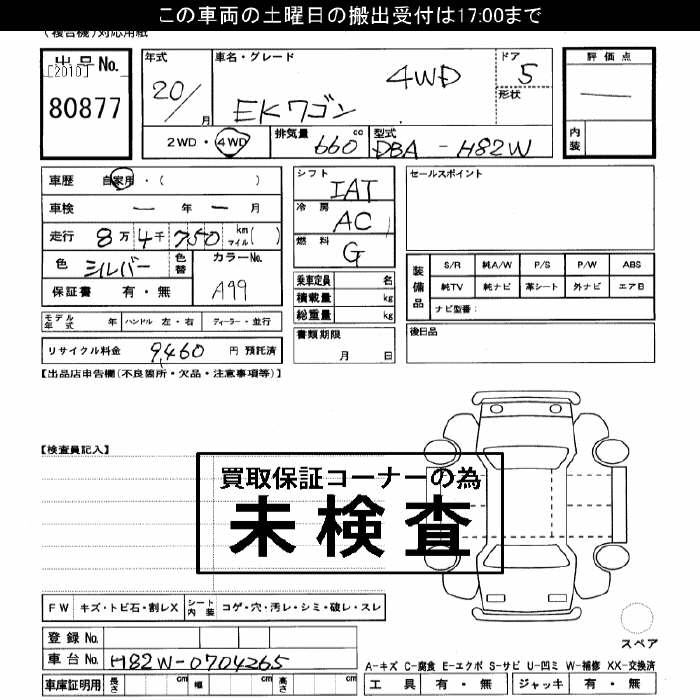 この車両の土曜日の搬出受付は17:00まで
(複合機)対応用紙
出品No.
[2010]
80877
年式
20/
月
車名・グレード
4WD
EKワゴン
ドア
5
形状
2WD・4WD
排気量
660 cc
型式
DBA-H82W
評価点
—
内装
車歴 自家用・( )
車検 — 年 — 月
走行 8万4千750 km マイル( )
色 シルバー
色替
カラーNo.
A99
保証書 有・無
モデル年式 年 ハンドル 左・右 ディーラー・並行
リサイクル料金 9,460 円 預託済
シフト
IAT
冷房
AC
燃料
G
乗車定員 名
積載量 kg
総重量 kg
書類期限
月 日
セールスポイント
装備品
S/R 純A/W P/S P/W ABS
純TV 純ナビ 革シート 外ナビ エアB
ナビ型番:
後日品
【出品店申告欄(不良箇所・欠品・注意事項等)】
【検査員記入】
買取保証コーナーの為
未検査
FW キズ・トビ石・割レX シート内装 コゲ・穴・汚レ・シミ・破レ・スレ
登録No.
車台No. H82W-0704265
車庫証明用 長さ cm 幅 cm 高さ cm
スペア
A-キズ C-腐食 E-エクボ S-サビ U-凹ミ W-補修 XX-交換済
工具 有・無 ジャッキ 有・無